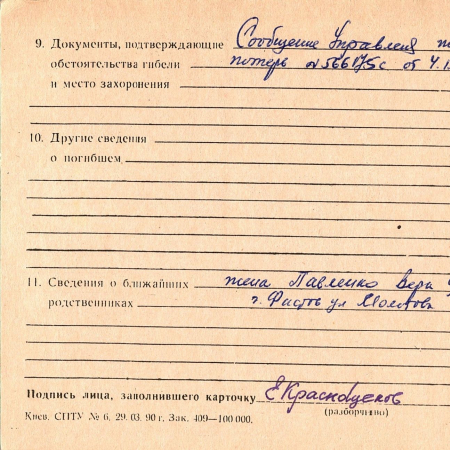 9. Документы, подтверждающие Сообщение Управления
обстоятельства гибели потерь № 566175с от 4.1
и место захоронения
10. Другие сведения
о погибшем
11. Сведения о ближайших жена Павленко Вера
родственниках г. Фастов ул Молотова
Подпись лица, заполнившего карточку ЕКраснощеков
(разборчиво)
Киев. СПТУ № 6. 29. 03. 90 г. Зак. 409—100 000.